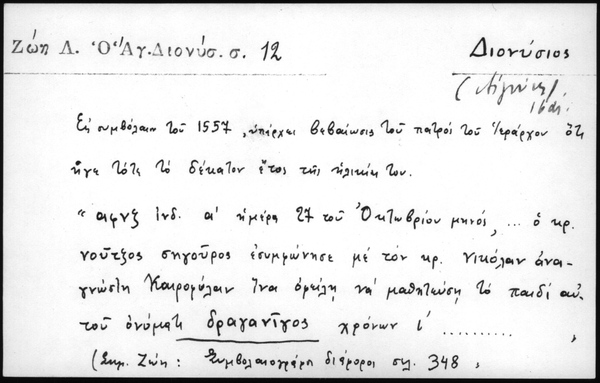 Ζώη Λ. Ὁ Ἅγ. Διονύσ. σ. 12
Διονύσιος
(Αἰγίνης)
16 αἰ.
Εἰς συμβόλαιον τοῦ 1557, ὑπάρχει βεβαίωσις τοῦ πατρός τοῦ Ἱεράρχου ὅτι
ἦγε τότε τὸ δέκατον ἔτος τῆς ἡλικίας του.
"αφνζ ἰνδ. α' ἡμέρᾳ 27 τοῦ Ὀκτωβρίου μηνός, ... ὁ κρ.
νοῦτζος σηγοῦρος ἐσυμφώνησε μέ τὸν κρ. νικόλαν ἀνα-
γνώστη Καιρομύλαν ἵνα ὀμείλῃ νά μαθητεύσῃ τὸ παιδί αὐ-
τοῦ ὀνόματι δραγανῖγος χρόνων ι' ..........
(Σημ. Ζώη: Συμβολαιογράφοι διάφοροι σελ. 348,